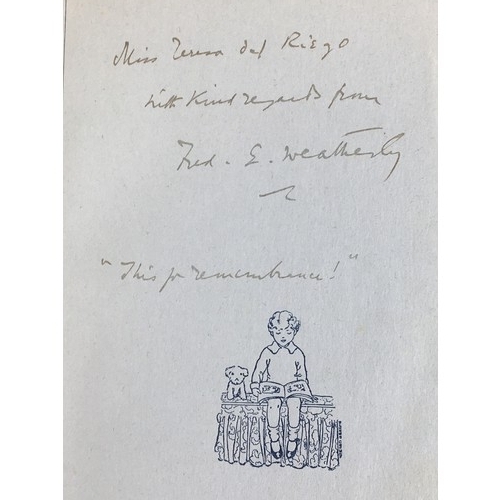 Miss Teresa del Riego
with kind regards from
Fred. E. Weatherly
"This for remembrance!"